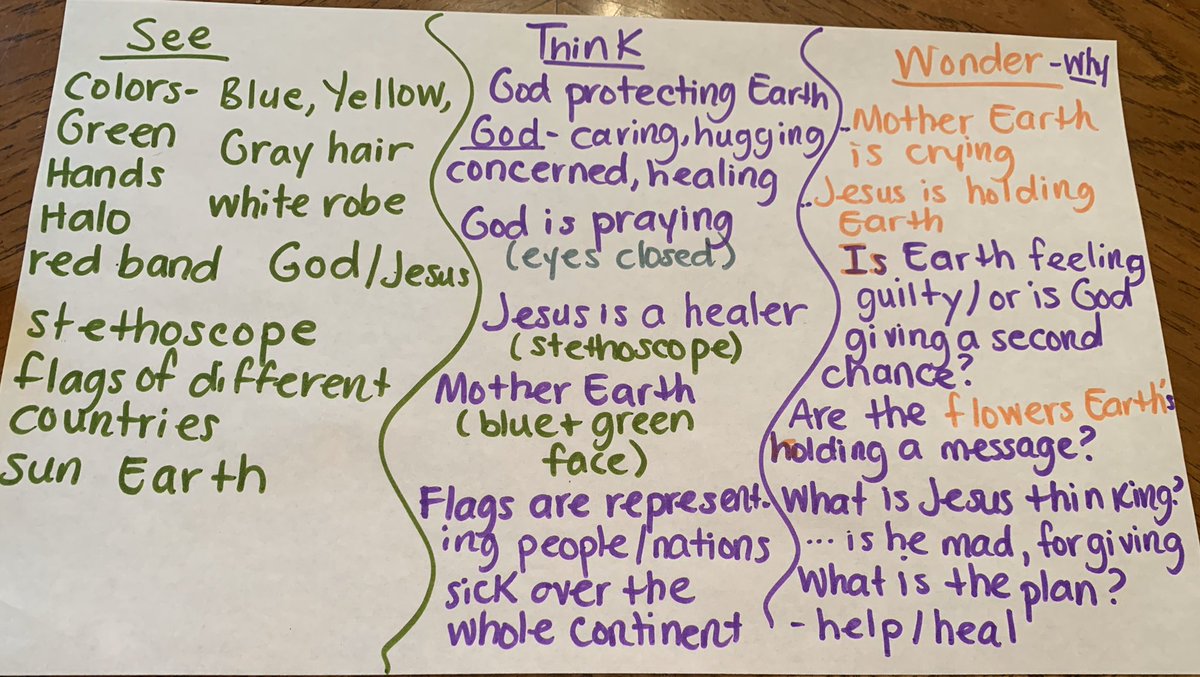 See
Colors- Blue, Yellow,
Green
Gray hair
Hands
white robe
Halo
red band God/Jesus
stethoscope
flags of different
countries
sun Earth
Think
God protecting Earth
God- caring, hugging
concerned, healing
God is praying
(eyes closed)
Jesus is a healer
(stethoscope)
Mother Earth
(blue+ green
face)
Flags are represent-
ing people/nations
sick over the
whole continent
Wonder -why
-Mother Earth
is crying
..Jesus is holding
Earth
Is Earth feeling
guilty/or is God
giving a second
chance?
Are the flowers Earth's
holding a message?
What is Jesus thinking?
... is he mad, forgiving
What is the plan?
- help/heal